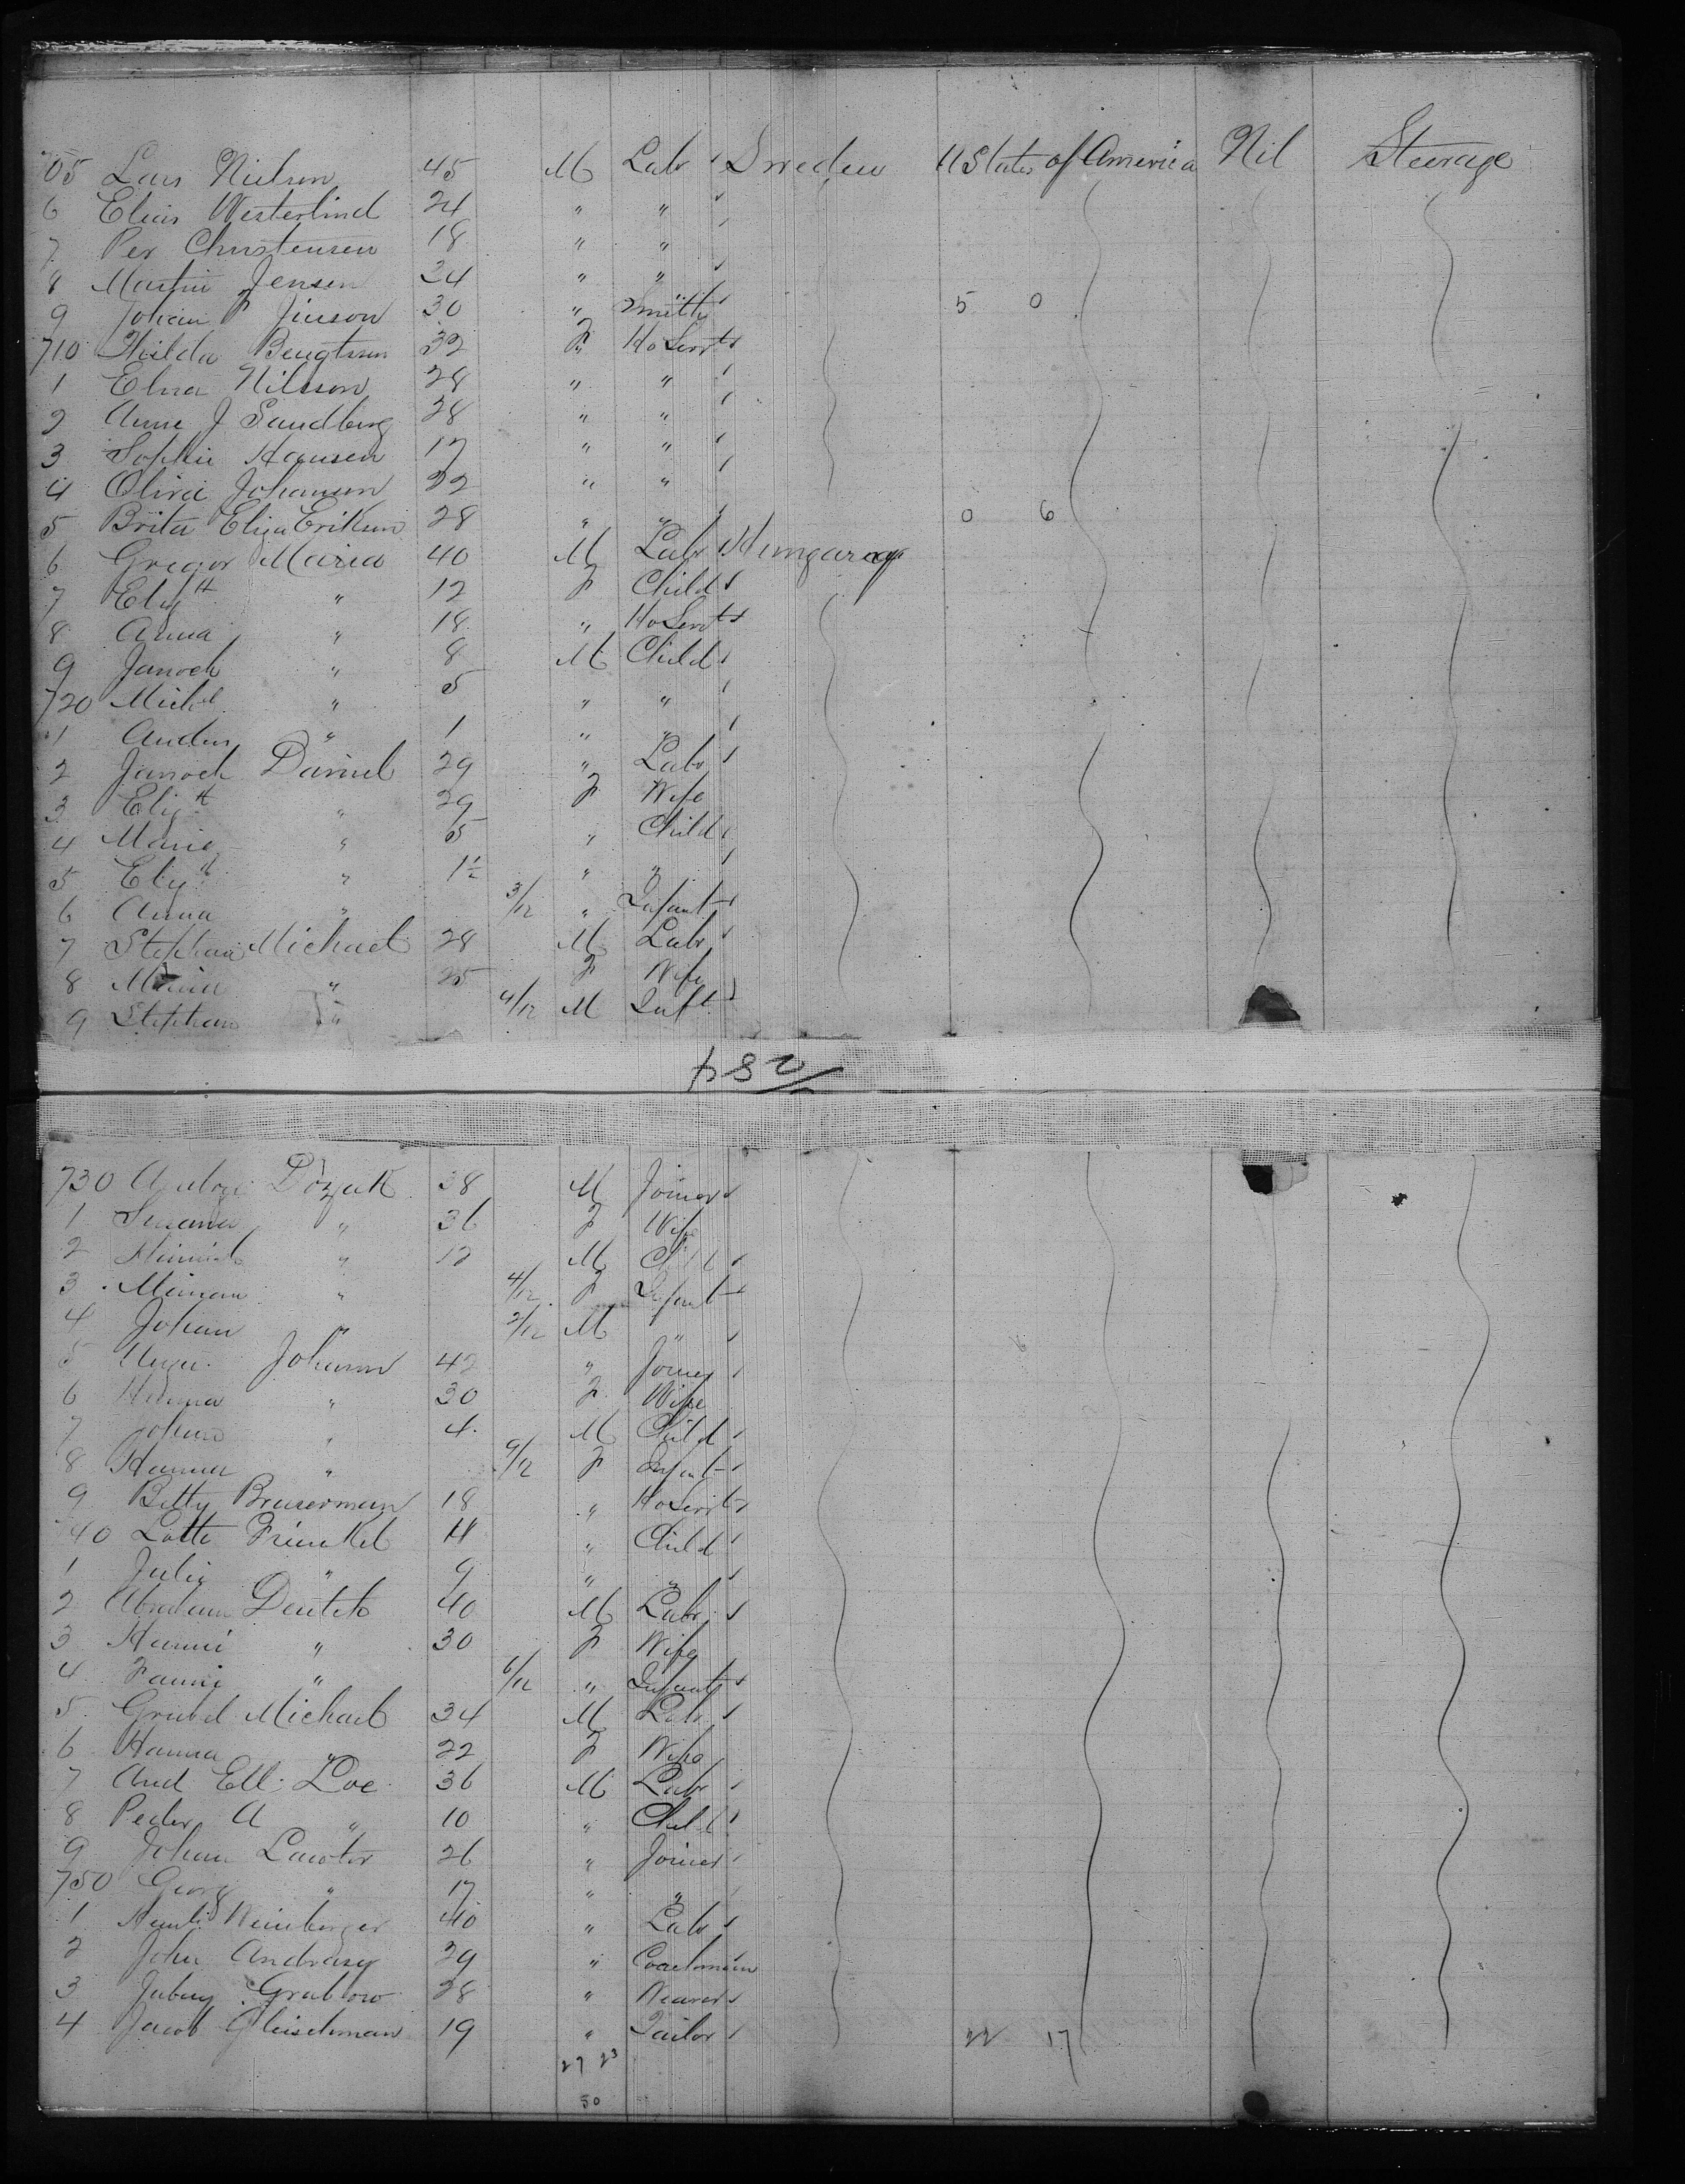 705 Lars Nielson 45 M Labr Sweden U States of America Nil Steerage
6 Elias Westerlind 24 " "
7 Per Christensen 18 " "
8 Martin Jensen 24 " "
9 Johan P Jinson 30 " Smith 5 0
710 Hilda Bengtson 32 F Ho Servt
1 Elna Nilsson 28 " "
2 Anna J Sandberg 28 " "
3 Sophie Hansen 17 " "
4 Oliva Johansen 22 " "
5 Brita Eliza Erikson 28 " " 0 6
6 Gregor Maria 40 M Labr Hungary
7 Elizth " 12 F Child
8 Anna " 18 " Ho Servt
9 Janoch " 8 M Child
720 Michl " 5 " "
1 " 1 " "
2 Janoch Daniel 29 " Labr
3 Elizth " 29 F Wife
4 Marie " 5 " Child
5 Elizth " 1½ " "
6 Anna " 3/12 " Infant
7 Stephan Michael 28 M Labr
8 " 25 F Wife
9 Stephan " 4/12 M Inft
284
730 38 M Joiner
1 Susana " 36 F Wife
2 " 12 M Child
3 " 4/12 F Infant
4 Johan " 2/12 M "
5 Johanson 42 " Joiner
6 " 30 F Wife
7 " 4 M Child
8 Hanna " 9/12 F Infant
9 Betty 18 " Ho Servt
40 Lotte Frienkel 11 " Child
1 Julia " 9 " "
2 Abraham Deutch 40 M Labr
3 Hanni " 30 F Wife
4 Fanni " 6/12 " Infant
5 Michael 34 M Labr
6 Hanna " 22 F Wife
7 And Ell. Loe 36 M Labr
8 Peder A " 10 " Child
9 Johan 26 " Joiner
750 Georg " 17 " "
1 Weinberger 40 " Labr
2 John Andrasy 29 " Coachman
3 Grabow 28 " Weaver
4 Jacob Gleischman 19 " Tailor 22 17
27 23
50